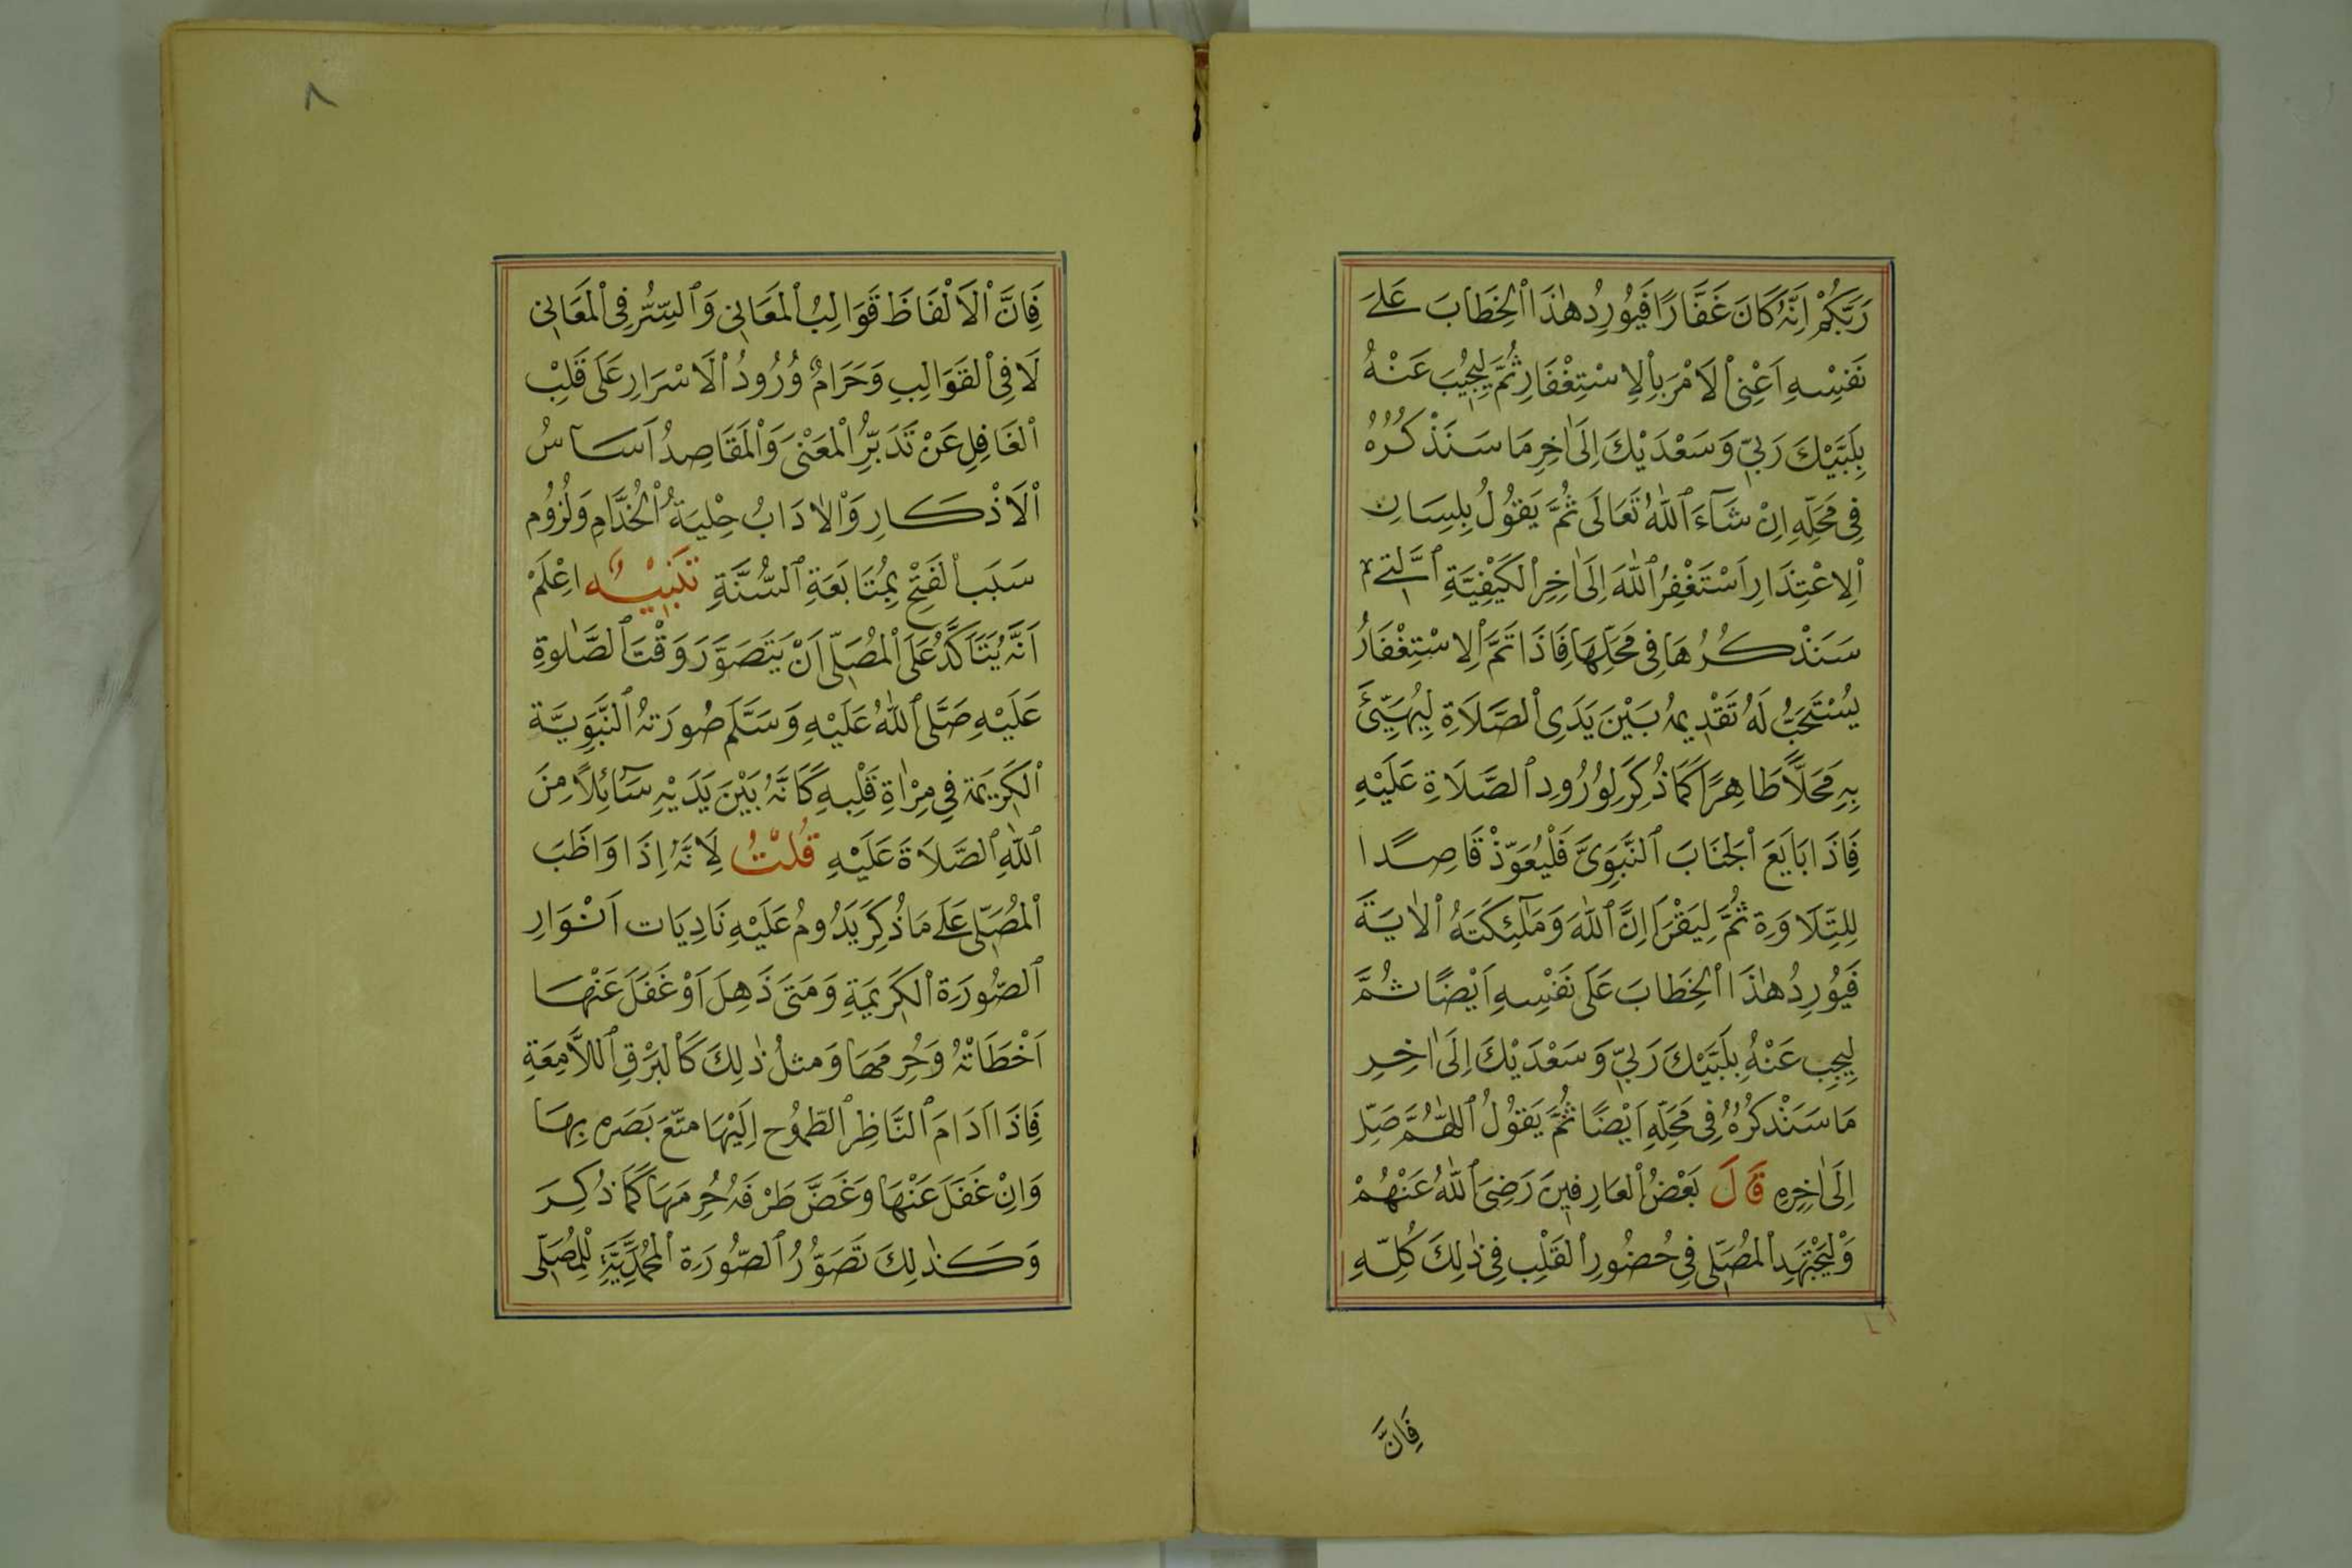 رَبَّكُمْ اِنَّهُ كَانَ غَفَّارًا فَيُورِدُ هٰذَا الْخِطَابَ عَلَى
نَفْسِهِ اَعْنِى الْاَمْرَ بِالْاِسْتِغْفَارِ ثُمَّ لِيُجِيبَ عَنْهُ
بِلَبَّيْكَ رَبِّي وَسَعْدَيْكَ اِلَى اٰخِرِ مَا سَنَذْكُرُهُ
فِي مَحَلِّهِ اِنْ شَآءَ اللّٰهُ تَعَالَى ثُمَّ يَقُولُ بِلِسَانِ
الْاِعْتِذَارِ اَسْتَغْفِرُ اللّٰهَ اِلَى اٰخِرِ الْكَيْفِيَّةِ الَّتِي
سَنَذْكُرُهَا فِي مَحَلِّهَا فَاِذَا تَمَّ الْاِسْتِغْفَارُ
يُسْتَحَبُّ لَهُ تَقْدِيمُهُ بَيْنَ يَدَىِ الصَّلَاةِ لِيُهَيِّئَ
بِهِ مَحَلًّا طَاهِرًا كَمَا ذُكِرَ لِوُرُودِ الصَّلَاةِ عَلَيْهِ
فَاِذَا بَايَعَ الْجَنَابَ النَّبَوِىَّ فَلْيُعَوِّذْ قَاصِدًا
لِلتِّلَاوَةِ ثُمَّ لِيَقْرَا اِنَّ اللّٰهَ وَمَلٰٓئِكَتَهُ الْاٰيَةَ
فَيُورِدُ هٰذَا الْخِطَابَ عَلَى نَفْسِهِ اَيْضًا ثُمَّ
لِيُجِبْ عَنْهُ بِلَبَّيْكَ رَبِّي وَسَعْدَيْكَ اِلَى اٰخِرِ
مَا سَنَذْكُرُهُ فِي مَحَلِّهِ اَيْضًا ثُمَّ يَقُولُ اللّٰهُمَّ صَلِّ
اِلَى اٰخِرِهِ قَالَ بَعْضُ الْعَارِفِينَ رَضِىَ اللّٰهُ عَنْهُمْ
وَلْيَجْتَهِدِ الْمُصَلِّى فِي حُضُورِ الْقَلْبِ فِي ذٰلِكَ كُلِّهِ
فَاِنَّ
٨
فَاِنَّ الْاَلْفَاظَ قَوَالِبُ الْمَعَانِي وَالسِّرُّ فِى الْمَعَانِي
لَا فِى الْقَوَالِبِ وَحَرَامٌ وُرُودُ الْاَسْرَارِ عَلَى قَلْبِ
الْغَافِلِ عَنْ تَدَبُّرِ الْمَعْنَى وَالْمَقَاصِدُ اَسَاسُ
الْاَذْكَارِ وَالْاٰدَابُ حِلْيَةُ الْخُدَّامِ وَلُزُوم
سَبَبِ الْفَتْحِ بِمُتَابَعَةِ السُّنَّةِ تَنْبِيْهٌ اِعْلَمْ
اَنَّهُ يُتَاَكَّدُ عَلَى الْمُصَلِّى اَنْ يَتَصَوَّرَ وَقْتَ الصَّلٰوةِ
عَلَيْهِ صَلَّى اللّٰهُ عَلَيْهِ وَسَلَّمَ صُورَتَهُ النَّبَوِيَّةَ
الْكَرِيمَةَ فِي مِرْاٰةِ قَلْبِهِ كَاَنَّهُ بَيْنَ يَدَيْهِ سَآئِلًا مِنَ
اللّٰهِ الصَّلَاةَ عَلَيْهِ قُلْتُ لِاَنَّهُ اِذَا وَاظَبَ
الْمُصَلِّى عَلَى مَا ذُكِرَ يَدُومُ عَلَيْهِ نَادِيَات اَنْوَارِ
الصُّورَةِ الْكَرِيمَةِ وَمَتَى ذَهِلَ اَوْ غَفَلَ عَنْهَا
اَخْطَاَتْهُ وَحُرِمَهَا وَمثلُ ذٰلِكَ كَالْبَرْقِ اللَّامِعَةِ
فَاِذَا اَدَامَ النَّاظِرُ الطَّمُوح اِلَيْهَا مَتَّعَ بَصَرَه بِهَا
وَاِنْ غَفَلَ عَنْهَا وَغَضَّ طَرْفَهُ حُرِمَهَا كَمَا ذُكِرَ
وَكَذٰلِكَ تَصَوُّرُ الصُّورَةِ الْمُحَمَّدِيَّةِ لِلْمُصَلِّى